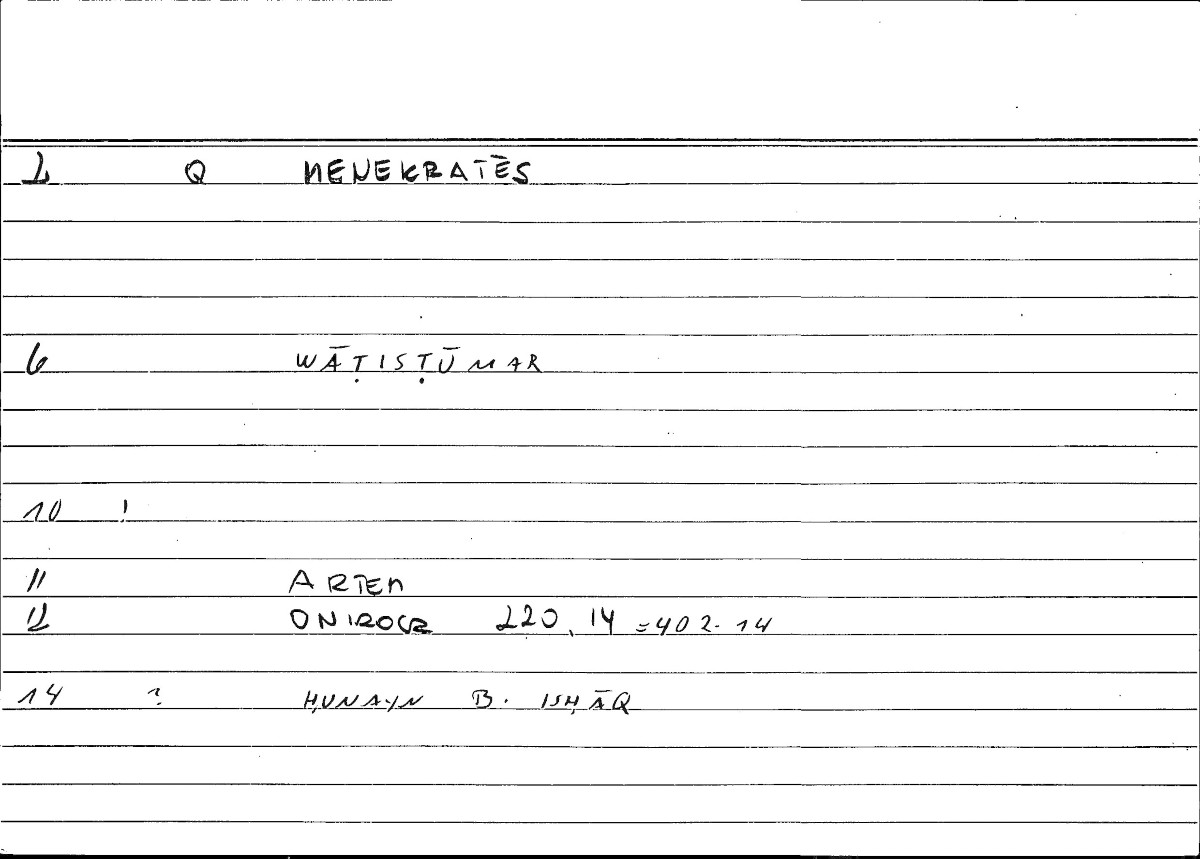 2 Q MENEKRATĒS
6 WĀṬISṬŪMAR
10 !
11 ARTEM
12 ONIROCR 220,14 =402.14
14 ? ḤUNAYN B. ISḤĀQ